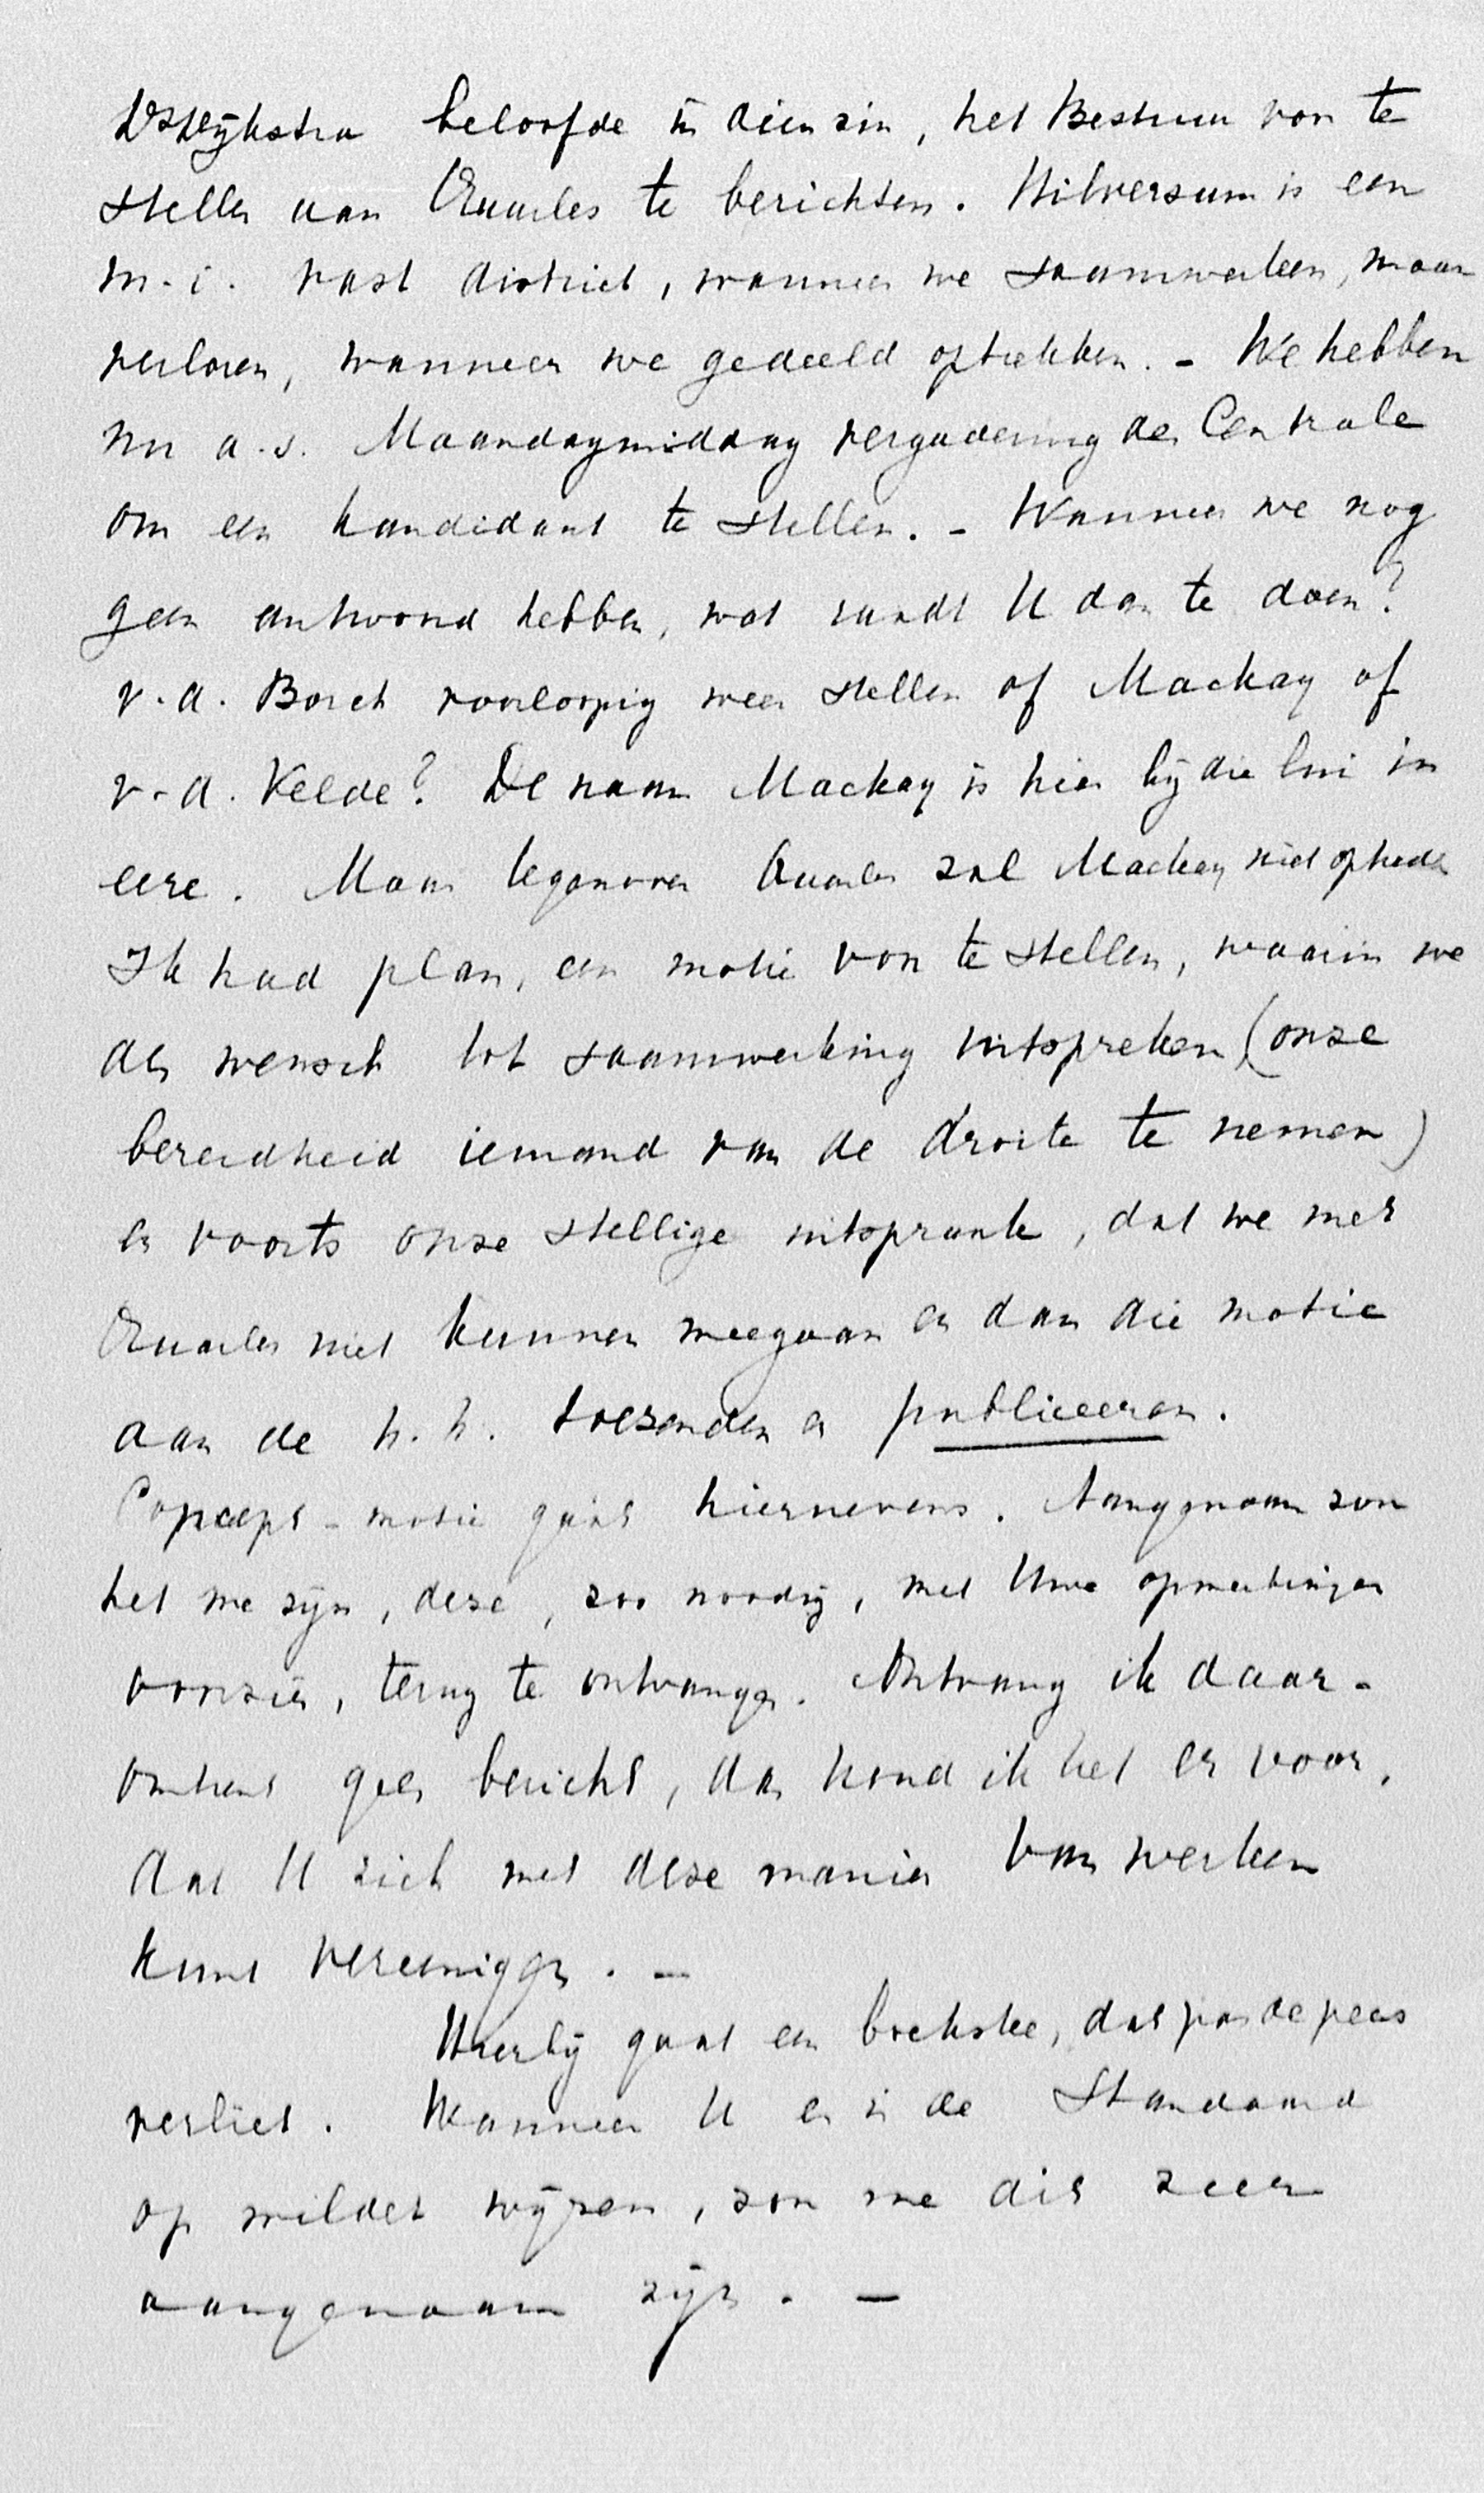 Ds Dijkstra beloofde in dien zin, het Bestuur voor te
stellen aan Quarles te berichten. Hilversum is een
m.i. vast district, wanneer we saamwerken, maar
verloren, wanneer we gedeeld optrekken. - We hebben
nu a.s. Maandagmiddag vergadering der Centrale
om een kandidaat te stellen. - Wanneer we nog
geen antwoord hebben, wat raadt U dan te doen?
v.d. Borch voorloopig weer stellen of Mackay of
v.d. Velde? De naam Mackay is hier bij die lui in
eere. Maar tegenover Quarles zal Mackay niet optreden
Ik had plan, een motie voor te stellen, waarin we
den wensch tot saamwerking uitspreken (onze
bereidheid iemand van de droite te nemen)
en voorts onze stellige uitspraak, dat we met
Quarles niet kunnen meegaan en dan die motie
aan de h.h. toezenden en publiceeren.
Concept-motie gaat hiernevens. Aangenaam zou
het me zijn, deze, zoo noodig, met Uwe opmerkingen
voorzien, terug te ontvangen. Ontvang ik daar-
omtrent geen bericht, dan houd ik het er voor,
dat U zich met deze manier van werken
kunt vereenigen. -
Hierbij gaat een boekske, dat pas de pers
verliet. Wanneer U er in de Standaard
op wildet wijzen, zou me dit zeer
aangenaam zijn. -